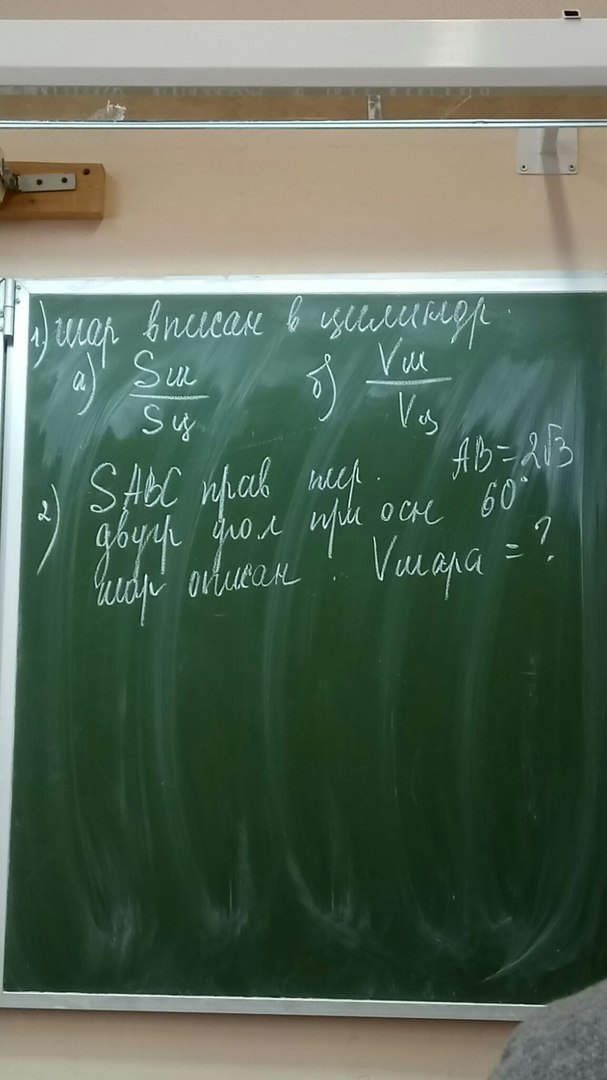 1) шар вписан в цилиндр.
а) Sш / Sц б) Vш / Vц
2) SABC прав пир. AB = 2√3
двугр угол при осн 60°
шар описан. Vшара = ?